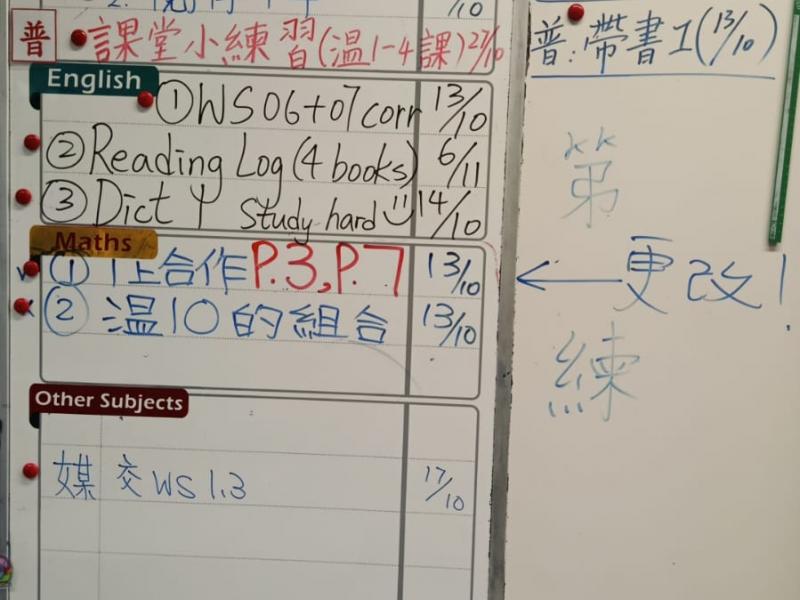 普 課堂小練習(温1-4課) 27/10
English
①WS06+07 corr 13/10
②Reading Log (4 books) 6/11
③Dict 4 Study hard 14/10
Maths
① 1上合作P.3,P.7 13/10
② 温10的組合 13/10
Other Subjects
媒 交WS 1.3 17/10
普:帶書1(13/10)
第
←更改!
練